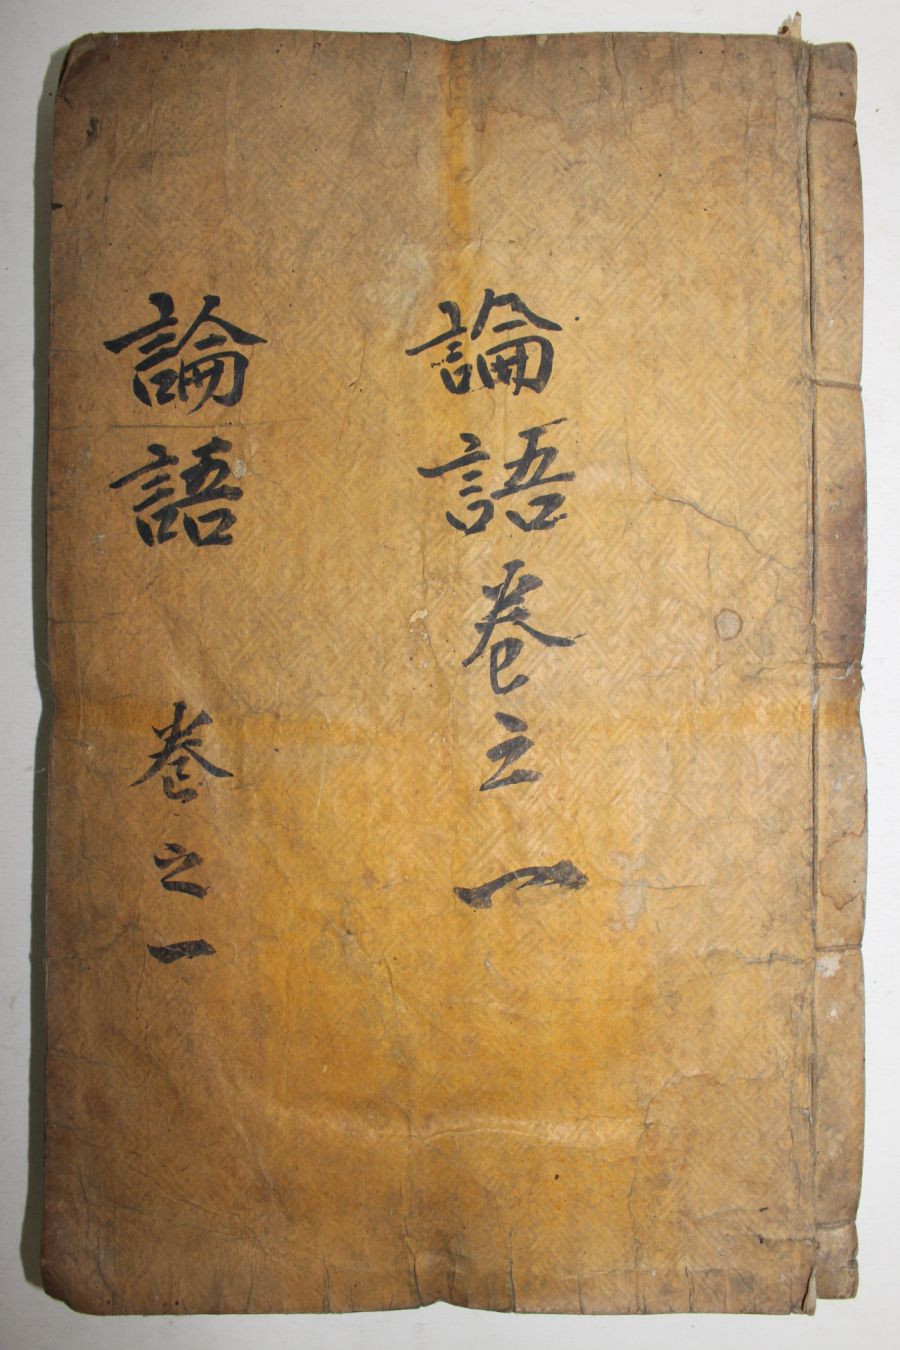 論語卷之一
論語 卷之一